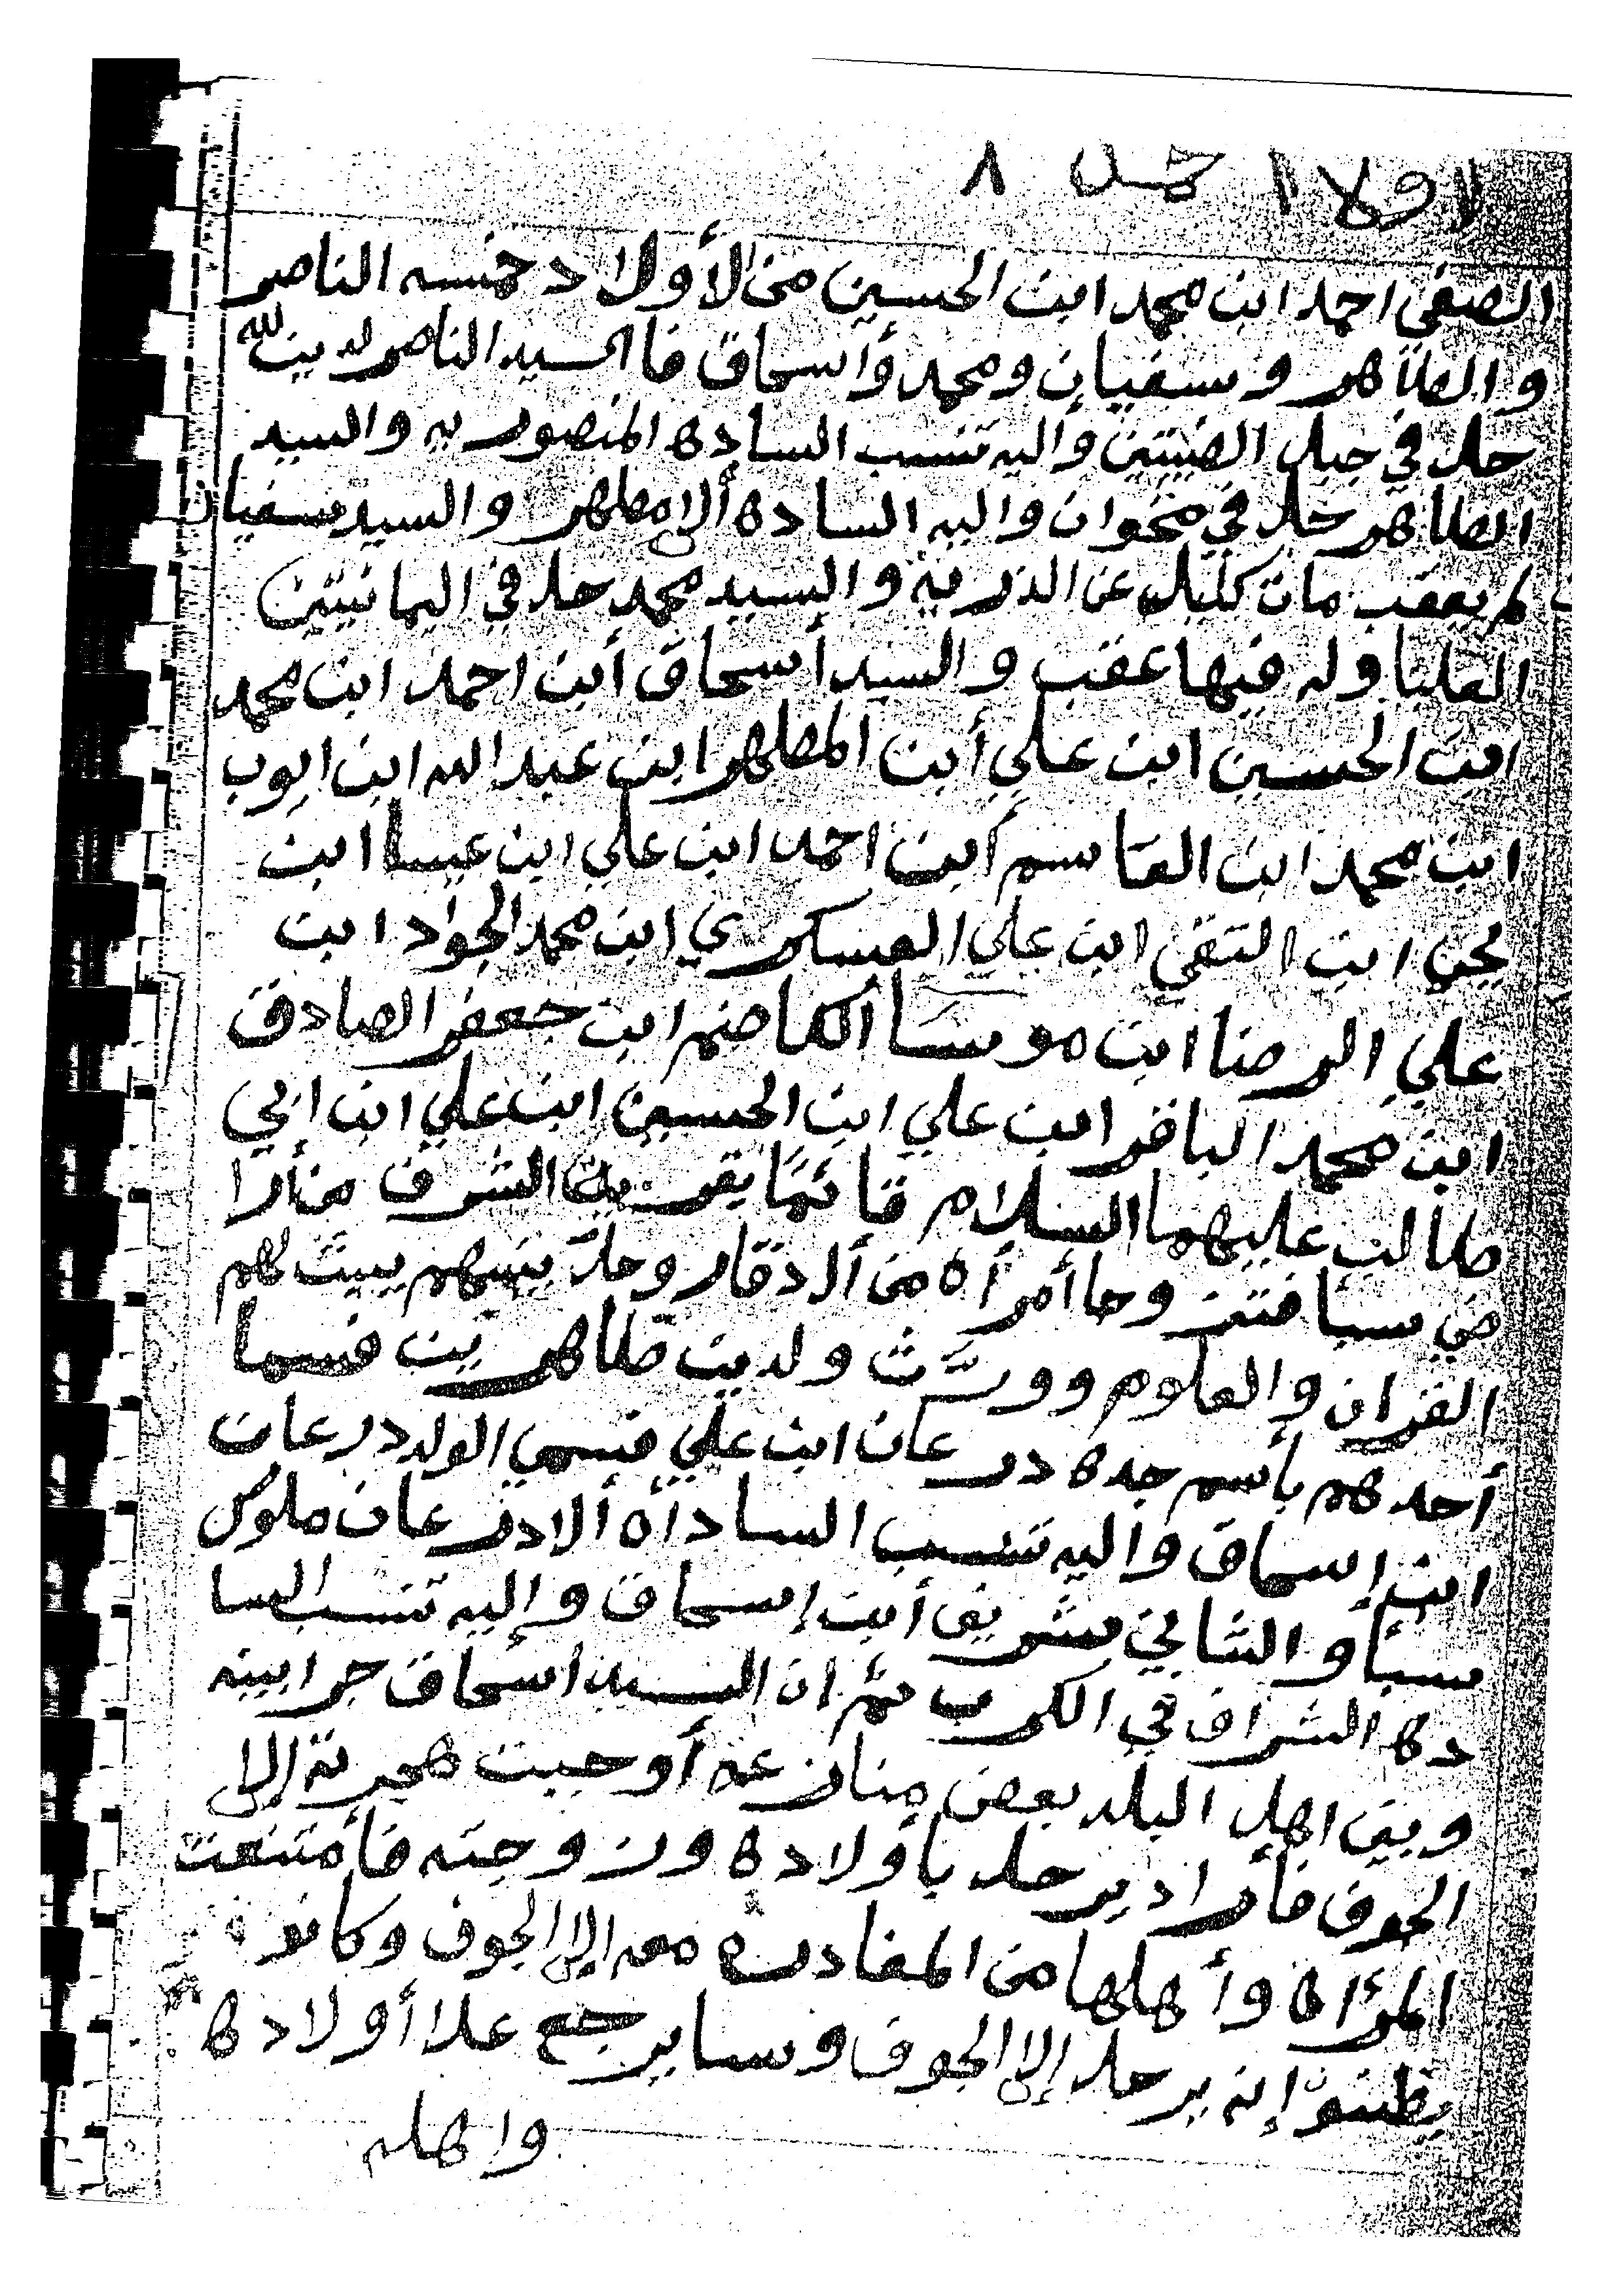 الصفي احمد ابن محمد ابن الحسين من الأولاد خمسه الناصر
و الطاهر و سفيان و محمد و أسحاق فا السيد الناصر لدين الله
حل في جبل الضبيتين و اليه تنسب الساده المنصوريه والسيد
الطاهر حل في مخوان و اليه الساده ألا مطهر والسيد سفيان
لم يعقب مات كليل عن الذريه و السيد محمد حل في اليمانيتين
العليا وله فيها عقب و السيد أسحاق أبن احمد ابن محمد
ابن الحسين ابن علي أبن المطهر ابن عبد الله ابن ايوب
ابن محمد ابن القاسم أبن احمد ابن علي ابن عيسا ابن
يحي ابن التقي ابن علي العسكري ابن محمد الجواد ابن
علي الرضا ابن موسا الكاضم ابن جعفر الصادق
ابن محمد الباقر ابن علي ابن الحسين ابن علي ابن ابي
طالب عليهما السلام قائمًا بقريت الشرف منأرا
في سبا فتز وجا أمرأه من أل ذقار وحل بينهم يبيت لهم
القران و العلوم وورّث ولدين طاهرين فسما
أحدهم بأسم جده درعان ابن علي فسمي الولد درعان
ابن إسحاق و اليه تنسب الساداه ألا درعان ملوك
سبأ و الثاني شريف أبن إسحاق و إليه تنسب السا
ده الشراف في الكرب ثم ان السيد أسحاق جرا بينه
وبين اهل البلد بعض منازعه أوجبت هجرته إلى
الجوف فأراد يرحل بأولاده وزوجته فأمتنعت
المرأه وأهلها من المغادره معه إلى الجوف وكانو
يظنوّ إنه يرحل إلى الجوف وسا يرجع علا أولاده
واهله